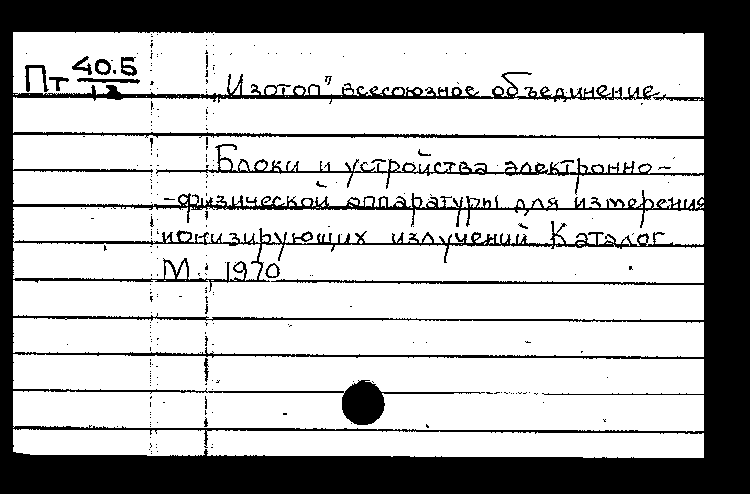 Пт 40.5/12 "Изотоп", всесоюзное объединение.
Блоки и устройства электронно-
-физической аппаратуры для измерения
ионизирующих излучений Каталог.
М., 1970